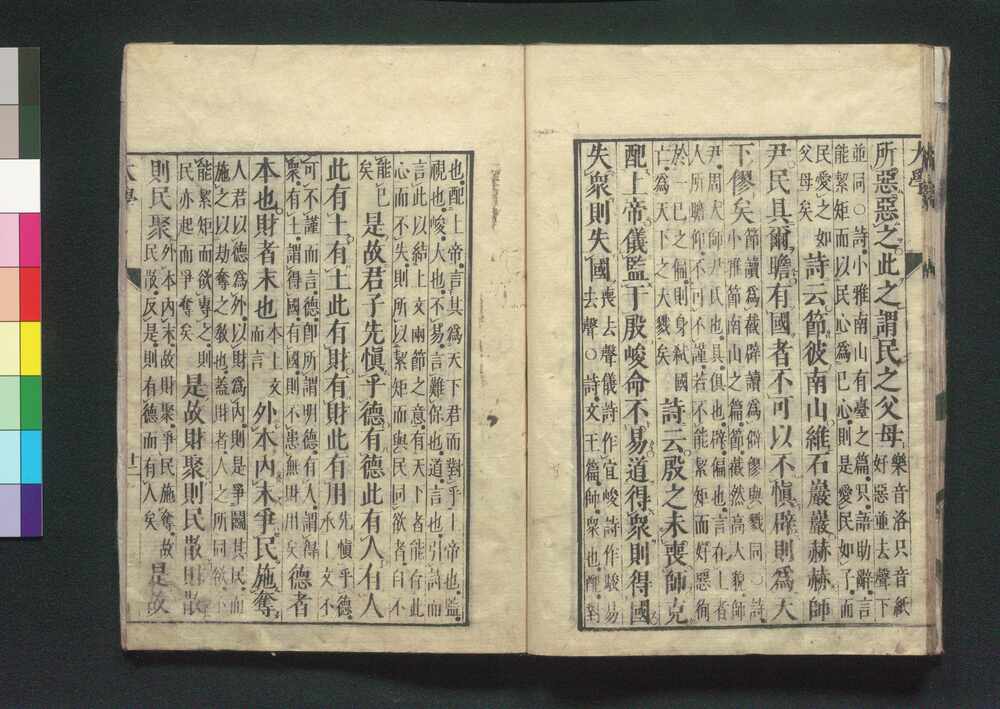 大學
所惡惡之此之謂民之父母樂音洛只音紙
好惡並去聲下
並同○詩小雅南山有臺之篇只語助辭言
能絜矩而以民心爲己心則是愛民如子而
民愛之如
父母矣
詩云節彼南山維石巖巖赫赫師
尹民具爾瞻有國者不可以不愼辟則爲天
下僇矣節讀爲截辟讀爲僻僇與戮同○詩
小雅節南山之篇節截然高大貌師
尹周太師尹氏也具俱也辟偏也言在上者
人所瞻仰不可不謹若不能絜矩而好惡徇
於一己之偏則身弑國
亡爲天下之大戮矣
詩云殷之未喪師克
配上帝儀監于殷峻命不易道得衆則得國
失衆則失國喪去聲儀詩作宜峻詩作駿易
去聲○詩文王篇師衆也配對
也配上帝言其爲天下君而對乎上帝也監
視也峻大也不易言難保也道言也引詩而
言此以結上文兩節之意有天下者能存此
心而不失則所以絜矩而與民同欲者自不
能已
矣
是故君子先愼乎德有德此有人有人
此有土有土此有財有財此有用先愼乎德
承上文不
可不謹而言德卽所謂明德有人謂得
衆有土謂得國有國則不患無財用矣
德者
本也財者末也本上文
而言
外本內末爭民施奪
人君以德爲外以財爲內則是爭鬭其民而
施之以劫奪之敎也蓋財者人之所同欲不
能絜矩而欲專之則
民亦起而爭奪矣
是故財聚則民散財散
則民聚外本內末故財聚爭民施奪故
民散反是則有德而有人矣
是故
大學
十二